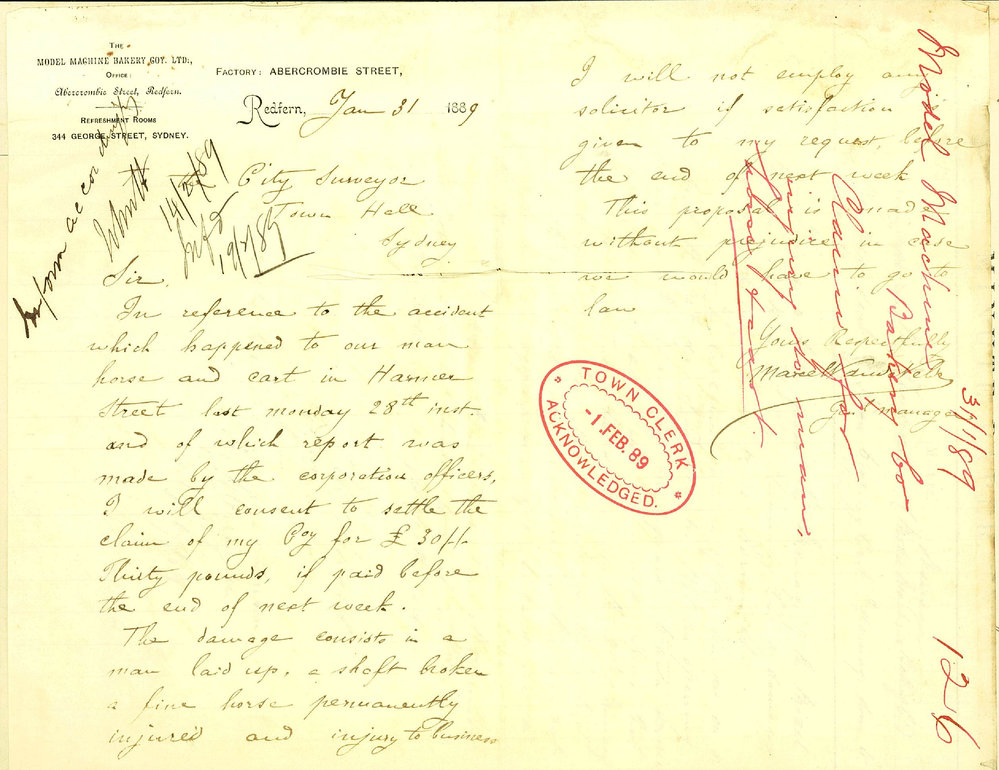 THE
MODEL MACHINE BAKERY COY. LTD:,
OFFICE:
Abercrombie Street, Redfern.
REFRESHMENT ROOMS
344 GEORGE STREET, SYDNEY.
FACTORY: ABERCROMBIE STREET,
Redfern, Jan 31 1889
City Surveyor
Town Hall
Sydney
Sir.
In reference to the accident
which happened to our man
horse and cart in Harmer
Street last monday 28th inst.
and of which report was
made by the corporation officers,
I will consent to settle the
claim of my Coy for £ 30/-/-
Thirty pounds, if paid before
the end of next week.
The damage consists in a
man laid up, a shaft broken
a fine horse permanently
injured and injury to business
I will not employ any
solicitor if satisfaction
given to my request, before
the end of next week
This proposal is made
without prejudice in case
we would have to go to
law
Yours Respectfully
Marcel
Gen manager
Inform accordingly
14/2/89
Inf'd
19/2/89
TOWN CLERK
-1. FEB. 89
ACKNOWLEDGED.
Model Machine
Bakery Co
Claim for
injury to man,
31/1/89
126